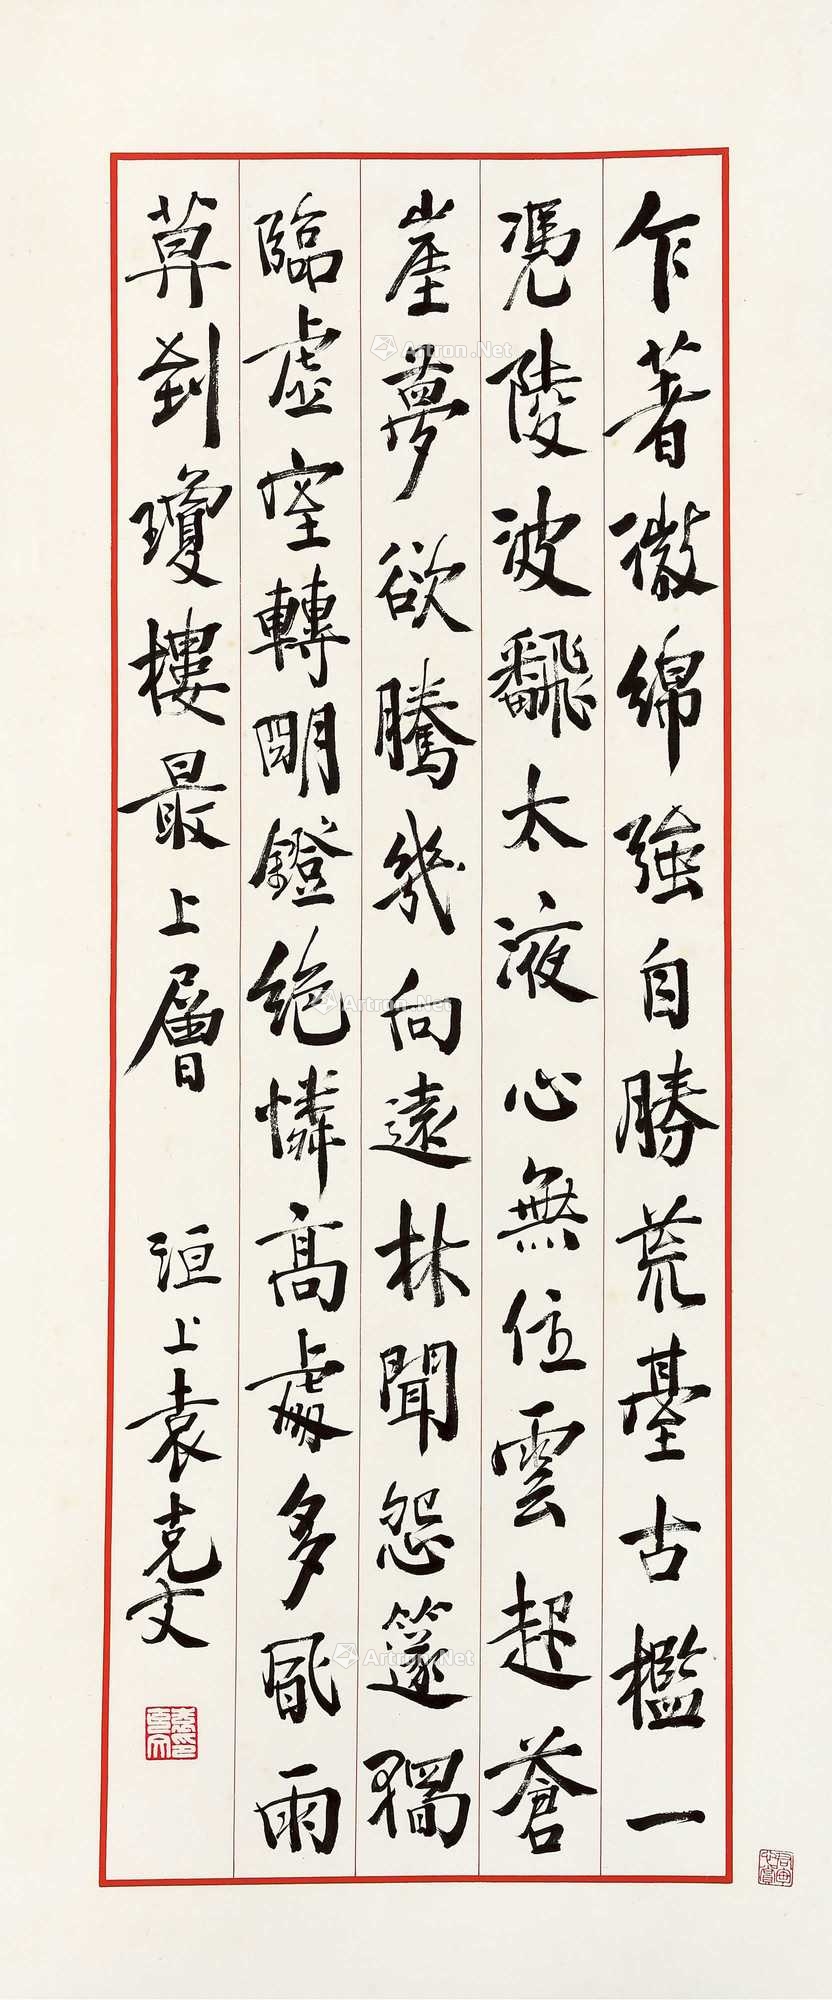 乍著微綿強自勝荒臺古檻一
憑陵波飜太液心無住雲起蒼
崖夢欲騰幾向遠林聞怨篴獨
臨虛室轉明鐙絶憐高處多風雨
莫到瓊樓最上層
洹上袁克文
Artron.Net
Artron.Net
Artron.Net
Artron.Net